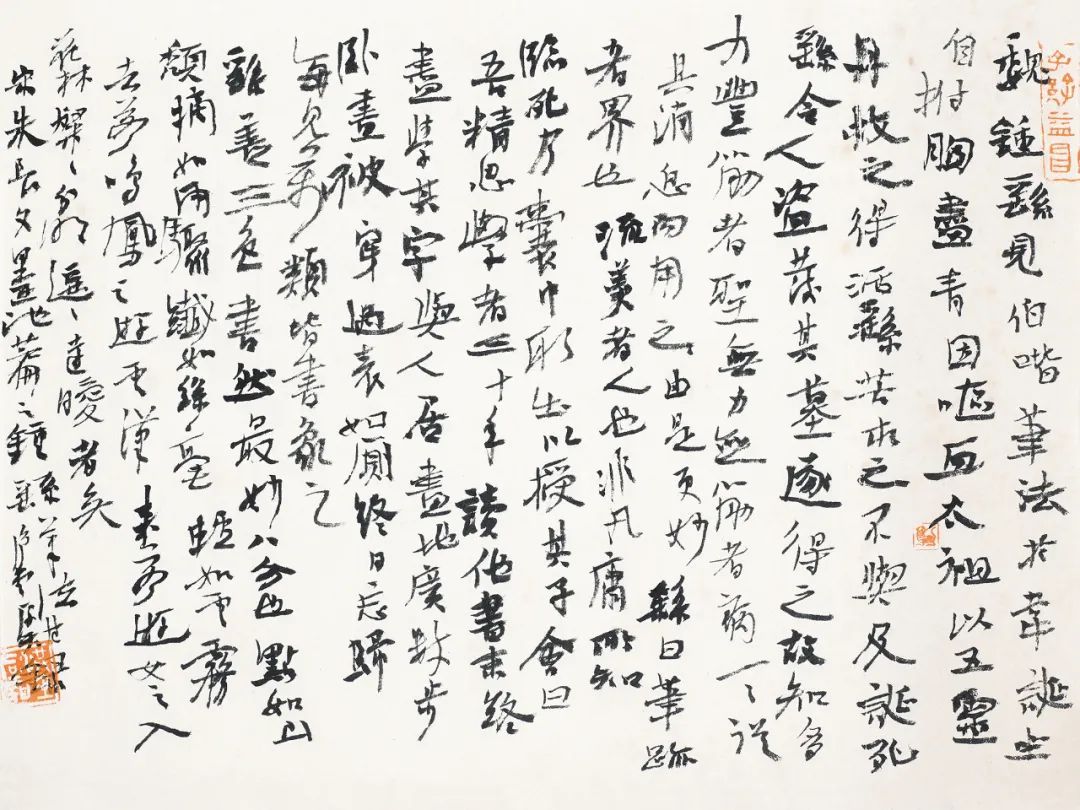 魏鍾繇見伯喈筆法於韋誕坐
自拊胸盡青因嘔血太祖以五靈
丹救之得活繇苦求之不與及誕死
繇令人盜發其墓遂得之故知多
力豐筋者聖無力無筋者病一一從
其消息而用之由是更妙繇曰筆跡
者界也流美者人也非凡庸所知
臨死乃囊中取出以授其子會曰
吾精思學書三十年讀他書未終
盡學其字與人居畫地廣數步
臥畫被穿過表如廁終日忘歸
每見萬類皆書象之
繇善三色書然最妙八分也點如山
頹摘如雨驟纖如絲毫輕如雲霧
去若鳴鳳之遊雲漢來若遊女之入
花林粲〻分明遙〻遠映者矣
宋朱長文墨池編之鍾繇筆法